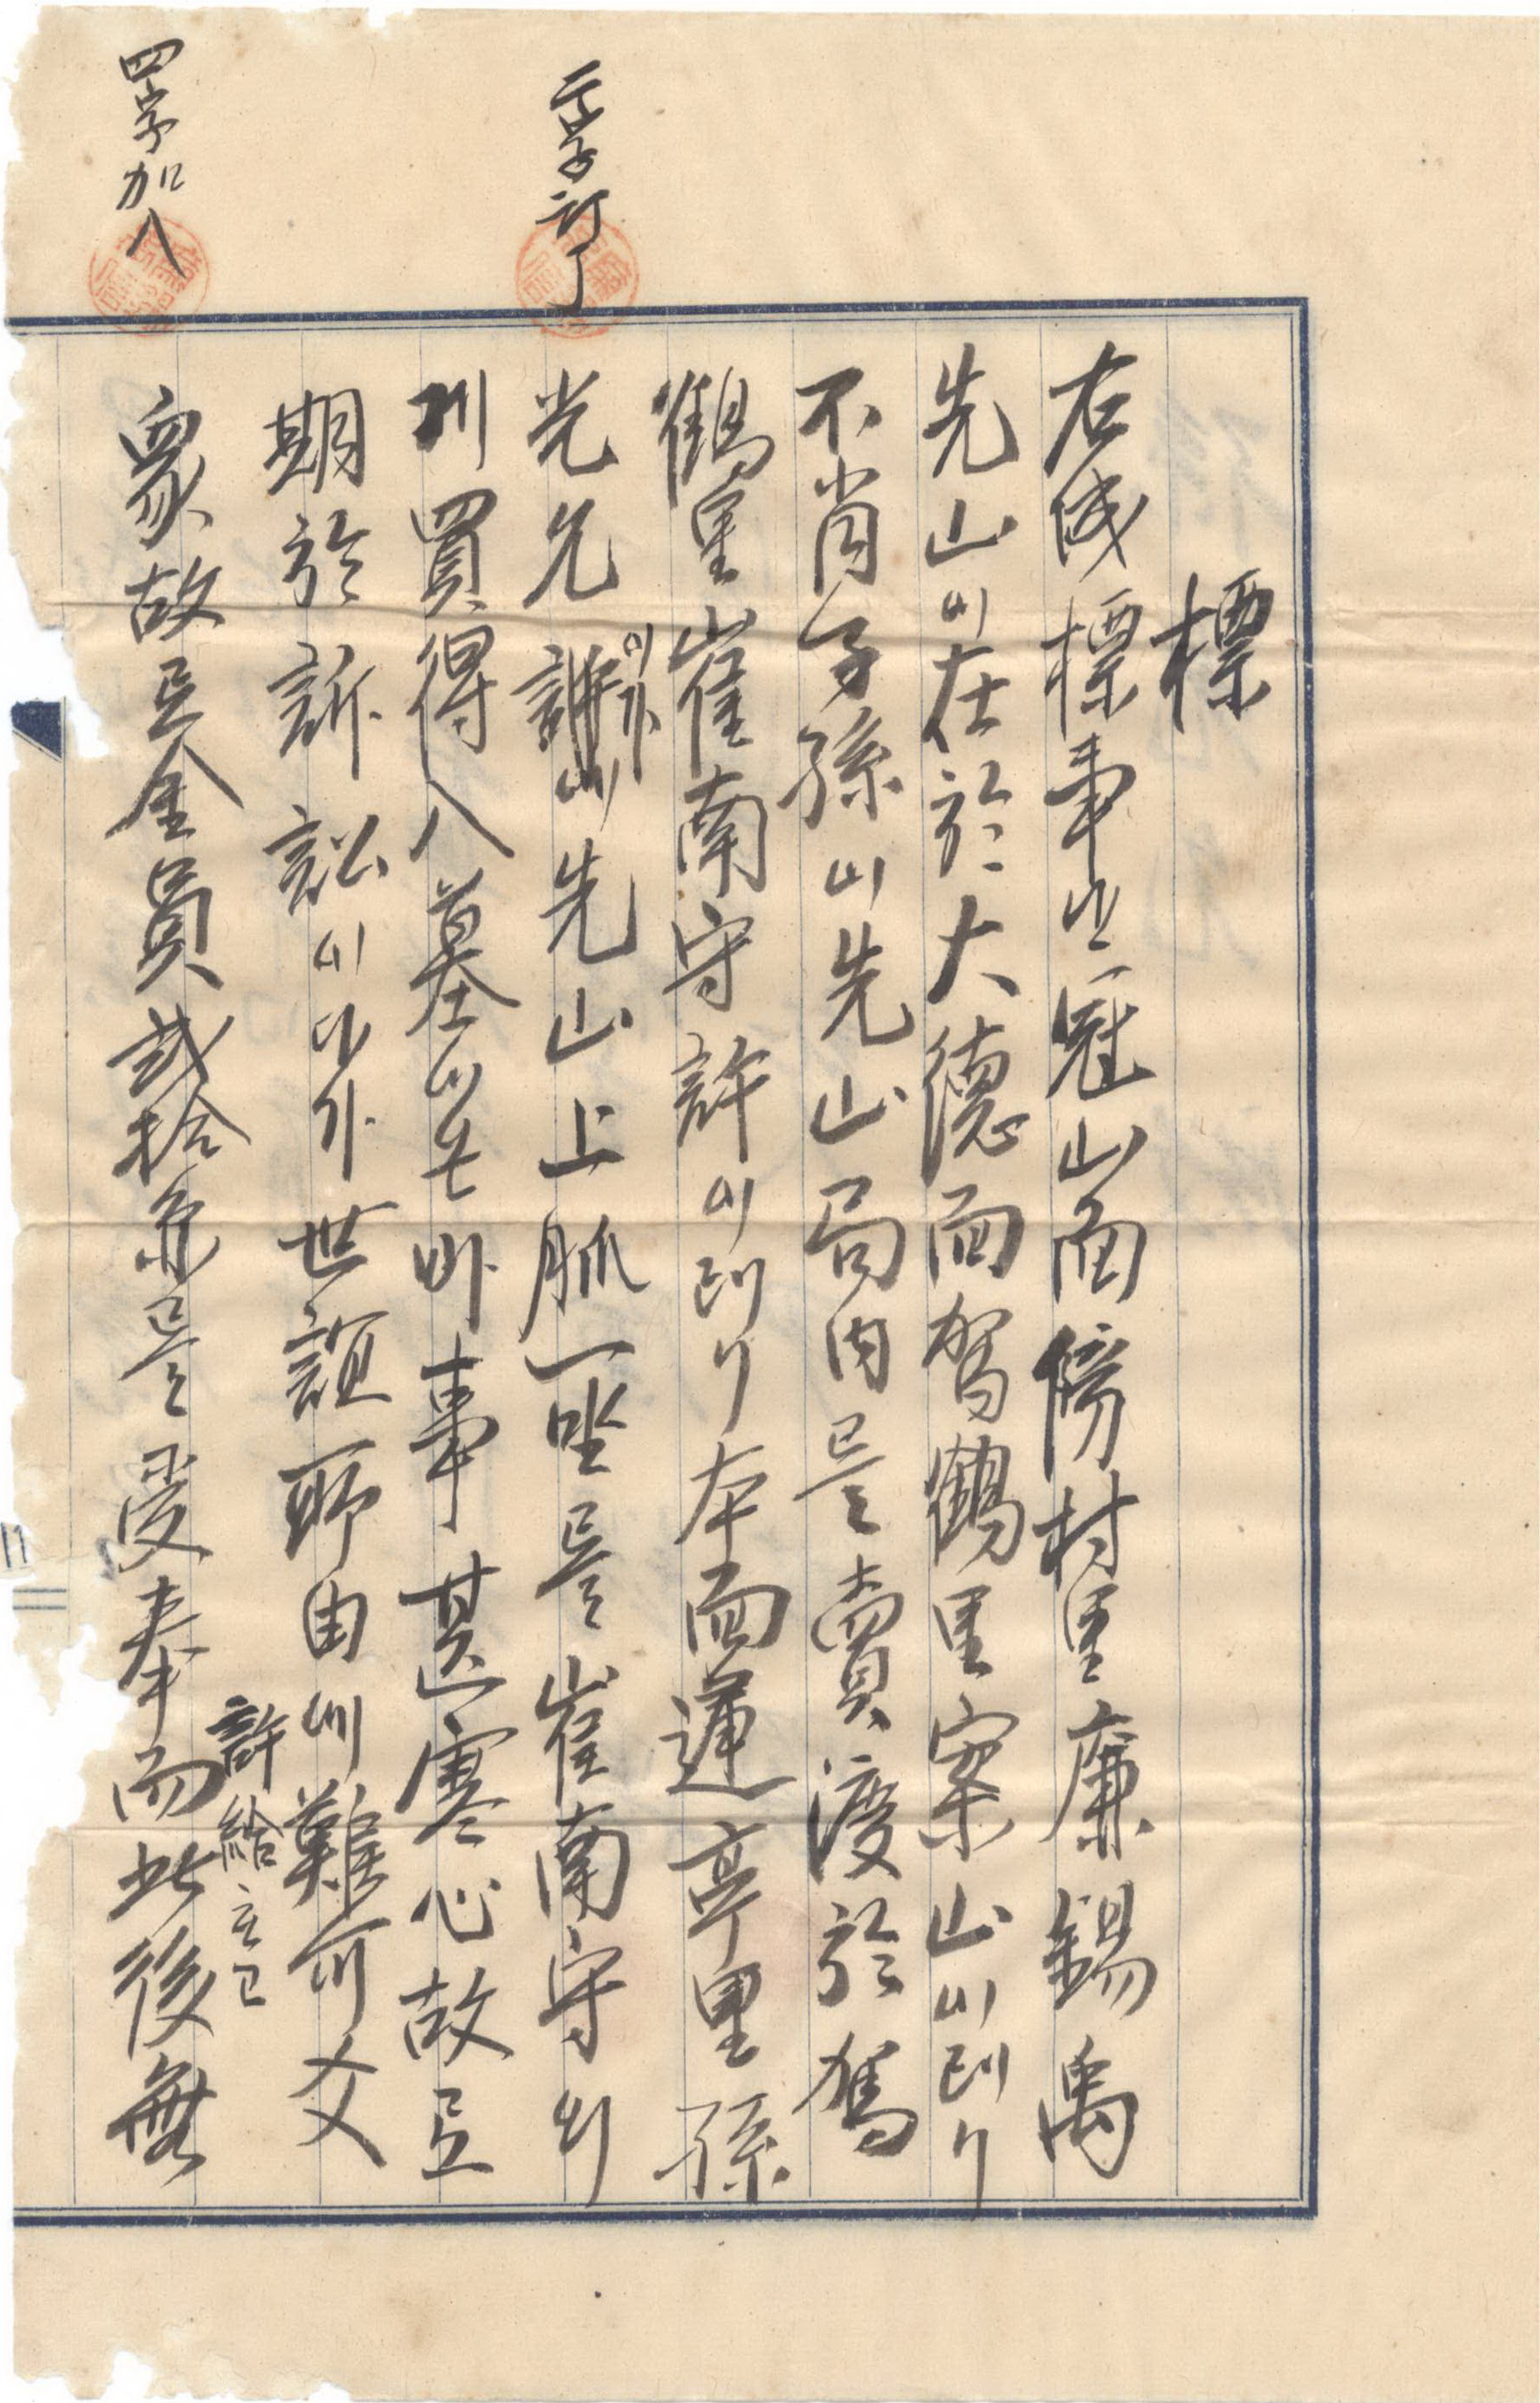 標
右成標事난冠山面傍村里廉錫禹
先山이在於大德面鴐鶴里案山이던니
不肖子孫이先山局內를賣渡於鴐
鶴里崔南守許이던니本面蓮亭里孫
光允이가先山上脈一坐를崔南守의
게買得入墓하온바事甚寒心故로
期於訴訟이다가世誼所由에難可父
許給하고
衆故로金員貳拾圓를受奉而此後無
二字訂了
四字加入